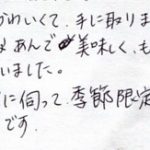 かわいくて、手に取りま
あんで美味しく、も
いました。
に伺って、季節限定
です。